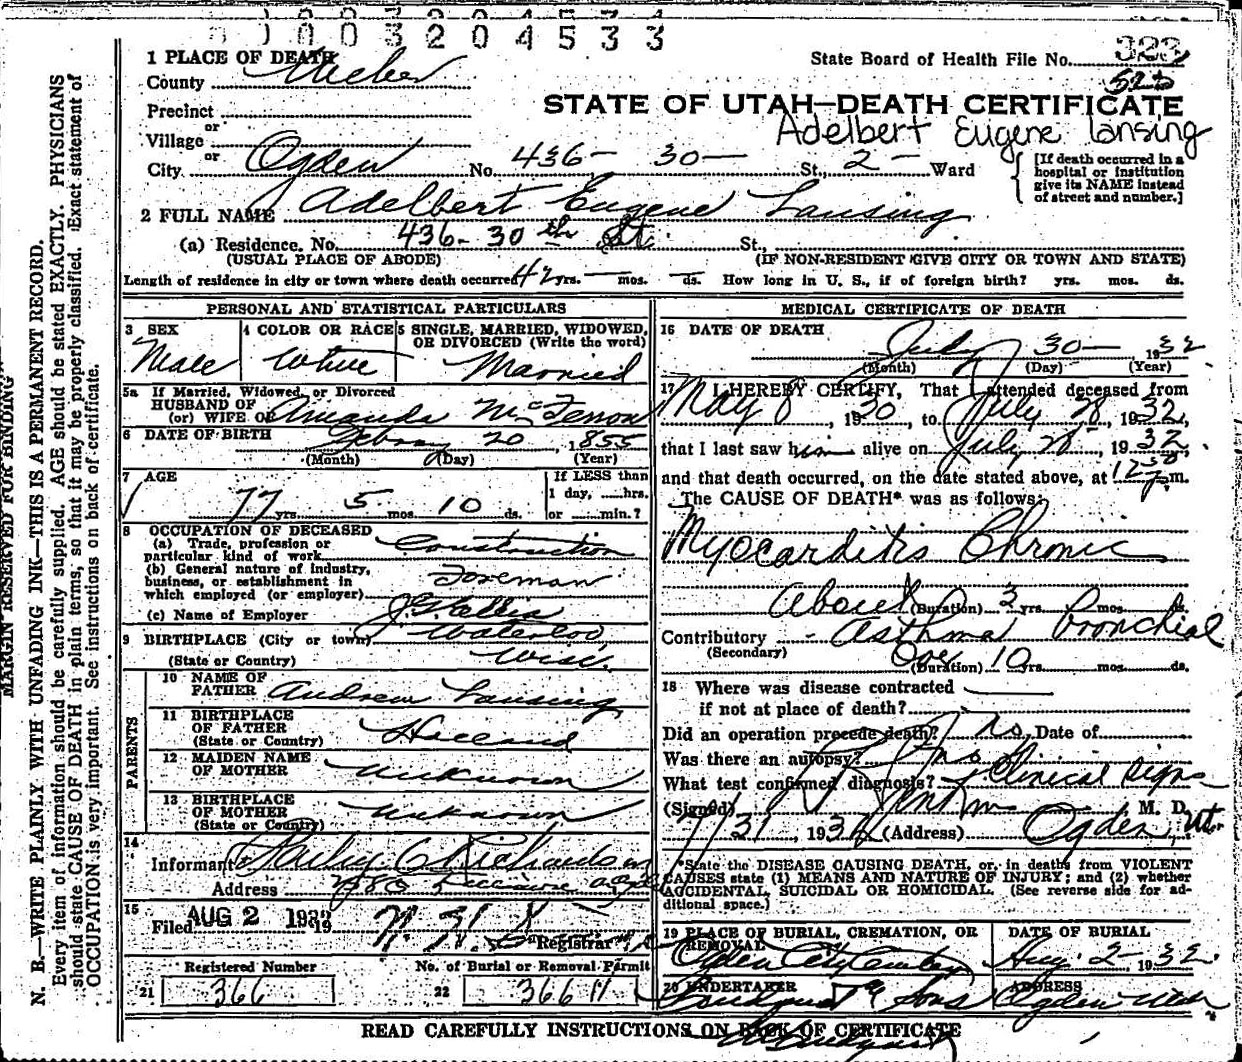 0 0 3 2 0 4 5 3 3
1 PLACE OF DEATH
County Weber
State Board of Health File No. 323
525
Precinct
or
Village
or
City Ogden No. 436- 30- St., 2- Ward
STATE OF UTAH—DEATH CERTIFICATE
Adelbert Eugene Lansing
[If death occurred in a hospital or institution give its NAME instead of street and number.]
2 FULL NAME Adelbert Eugene Lansing
(a) Residence. No. 436-30th St. St.,
(USUAL PLACE OF ABODE) (IF NON-RESIDENT GIVE CITY OR TOWN AND STATE)
Length of residence in city or town where death occurred 42 yrs. — mos. — ds. How long in U. S., if of foreign birth? yrs. mos. ds.
PERSONAL AND STATISTICAL PARTICULARS
3 SEX
Male
4 COLOR OR RACE
White
5 SINGLE, MARRIED, WIDOWED, OR DIVORCED (Write the word)
Married
5a If Married, Widowed, or Divorced
HUSBAND OF
(or) WIFE OF Amanda
6 DATE OF BIRTH 20, 1855
(Month) (Day) (Year)
7 AGE
77 yrs. 5 mos. 10 ds.
If LESS than
1 day, ....hrs.
or ....min.?
8 OCCUPATION OF DECEASED
(a) Trade, profession or
particular kind of work Construction
(b) General nature of industry,
business, or establishment in
which employed (or employer) Foreman
(c) Name of Employer
9 BIRTHPLACE (City or town) Waterloo
(State or Country) Wisc.
PARENTS
10 NAME OF
FATHER Andrew Lansing
11 BIRTHPLACE
OF FATHER
(State or Country) Holland
12 MAIDEN NAME
OF MOTHER Unknown
13 BIRTHPLACE
OF MOTHER
(State or Country) Unknown
14
Informant Richardson
Address
15
Filed AUG 2 1932 19 Registrar
Registered Number
21 366
No. of Burial or Removal Permit
22 36611
MEDICAL CERTIFICATE OF DEATH
16 DATE OF DEATH
July 30- 1932
(Month) (Day) (Year)
17 I HEREBY CERTIFY, That I attended deceased from
May 8, 1930, to July 28, 1932,
that I last saw him alive on July 28, 1932,
and that death occurred, on the date stated above, at 12 30 p.m.
The CAUSE OF DEATH* was as follows:
Myocarditis Chronic
About (Duration) 3 yrs. 0 mos. ds.
Contributory Asthma bronchial
(Secondary)
Over (Duration) 10 yrs. mos. ds.
18 Where was disease contracted
if not at place of death?
Did an operation precede death? no Date of
Was there an autopsy? no
What test confirmed diagnosis? Clinical signs
(Signed) M. D.
7/31, 1932 (Address) Ogden, Ut.
*State the DISEASE CAUSING DEATH, or, in deaths from VIOLENT
CAUSES state (1) MEANS AND NATURE OF INJURY; and (2) whether
ACCIDENTAL, SUICIDAL OR HOMICIDAL. (See reverse side for ad-
ditional space.)
19 PLACE OF BURIAL, CREMATION, OR
REMOVAL
Ogden City Cemetery
DATE OF BURIAL
Aug. 2- 1932.
20 UNDERTAKER
Lindquist & Sons
ADDRESS
Ogden Utah
READ CAREFULLY INSTRUCTIONS ON BACK OF CERTIFICATE
MARGIN RESERVED FOR BINDING
N. B.—WRITE PLAINLY WITH UNFADING INK—THIS IS A PERMANENT RECORD.
Every item of information should be carefully supplied. AGE should be stated EXACTLY. PHYSICIANS
should state CAUSE OF DEATH in plain terms, so that it may be properly classified. Exact statement of
OCCUPATION is very important. See instructions on back of certificate.